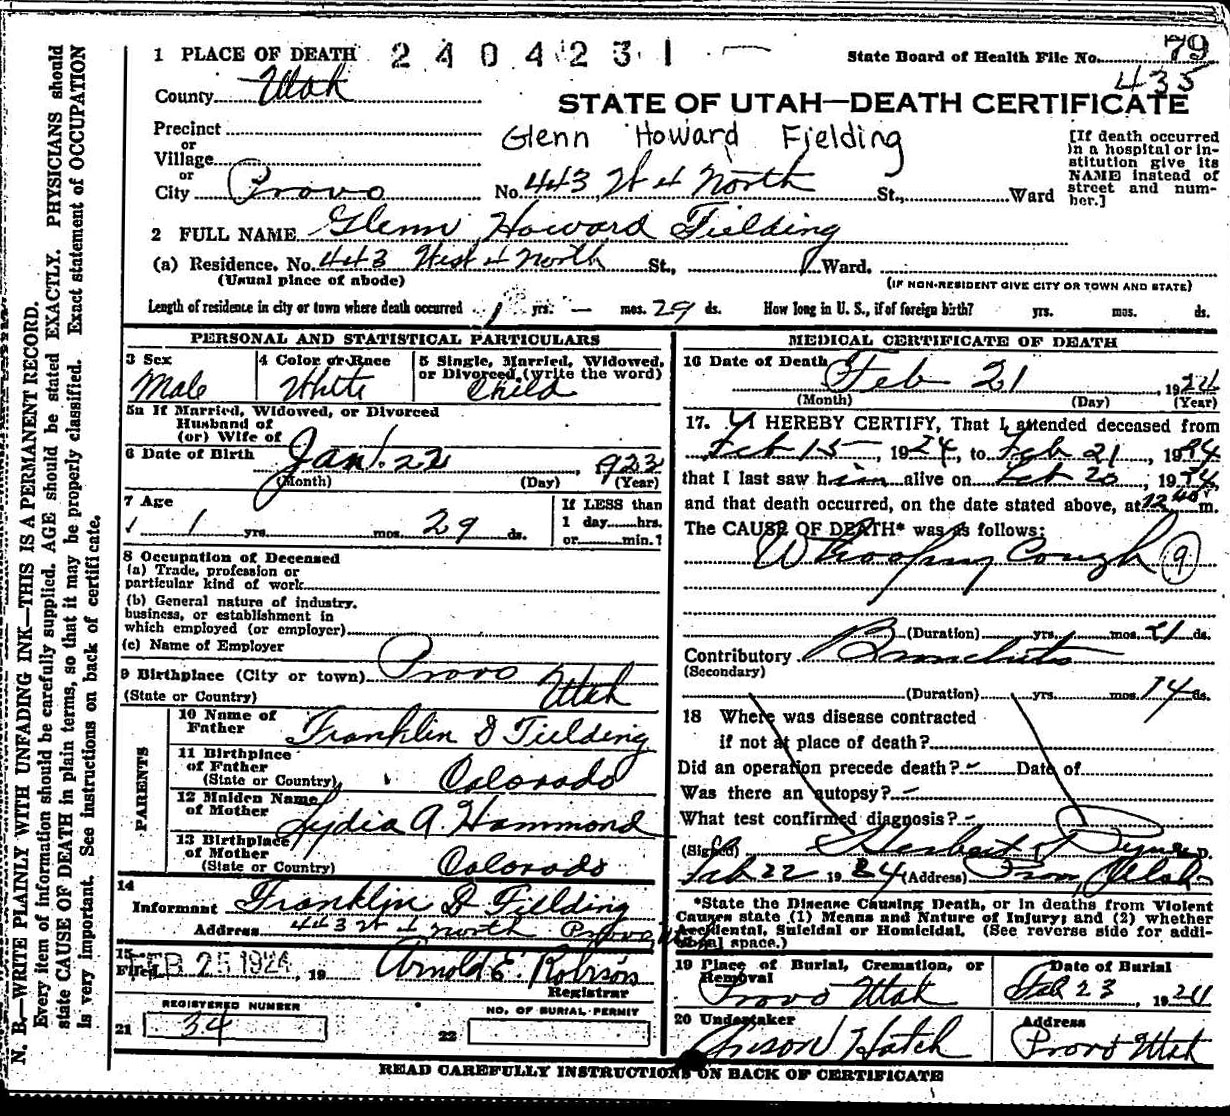 N. B.—WRITE PLAINLY WITH UNFADING INK—THIS IS A PERMANENT RECORD.
Every item of information should be carefully supplied. AGE should be stated EXACTLY. PHYSICIANS should
state CAUSE OF DEATH in plain terms, so that it may be properly classified. Exact statement of OCCUPATION
is very important. See instructions on back of certificate.
1 PLACE OF DEATH 2404231
State Board of Health File No. 79
435
County Utah
STATE OF UTAH—DEATH CERTIFICATE
Precinct
or
Village
or
City Provo
Glenn Howard Fielding
No. 443 W 4 North St., Ward
[If death occurred
in a hospital or in-
stitution give its
NAME instead of
street and num-
ber.]
2 FULL NAME Glenn Howard Fielding
(a) Residence. No. 443 West 4 North St., Ward.
(Usual place of abode)
(IF NON-RESIDENT GIVE CITY OR TOWN AND STATE)
Length of residence in city or town where death occurred 1 yrs. — mos. 29 ds. How long in U. S., if of foreign birth? yrs. mos. ds.
PERSONAL AND STATISTICAL PARTICULARS
3 Sex
Male
4 Color or Race
White
5 Single, Married, Widowed,
or Divorced (write the word)
Child
5a If Married, Widowed, or Divorced
Husband of
(or) Wife of
6 Date of Birth Jan. 22, 1923
(Month) (Day) (Year)
7 Age
1 yrs. mos. 29 ds.
If LESS than
1 day....hrs.
or....min.?
8 Occupation of Deceased
(a) Trade, profession or
particular kind of work
(b) General nature of industry,
business, or establishment in
which employed (or employer)
(c) Name of Employer
9 Birthplace (City or town) Provo
(State or Country) Utah
PARENTS
10 Name of
Father Franklin D Fielding
11 Birthplace
of Father
(State or Country) Colorado
12 Maiden Name
of Mother Lydia A. Hammond
13 Birthplace
of Mother
(State or Country) Colorado
14
Informant Franklin D Fielding
Address 443 W 4 North Provo Utah
15
Filed FEB 25 1924, 19 Arnold E. Robison
Registrar
REGISTERED NUMBER
21 34
NO. OF BURIAL PERMIT
22
MEDICAL CERTIFICATE OF DEATH
16 Date of Death
Feb 21 1924
(Month) (Day) (Year)
17. I HEREBY CERTIFY, That I attended deceased from
Feb 15, 1924, to Feb 21, 1924
that I last saw him alive on Feb 20, 1924,
and that death occurred, on the date stated above, at 12 40 m.
The CAUSE OF DEATH* was as follows:
Whooping Cough 9
(Duration) yrs. mos. 21 ds.
Contributory Bronchitis
(Secondary)
(Duration) yrs. mos. 14 ds.
18 Where was disease contracted
if not at place of death?
Did an operation precede death? - Date of
Was there an autopsy? -
What test confirmed diagnosis? -
(Signed) Herbert M.D.
Feb 22 1924 (Address) Provo, Utah
*State the Disease Causing Death, or in deaths from Violent
Causes state (1) Means and Nature of Injury; and (2) whether
Accidental, Suicidal or Homicidal. (See reverse side for addi-
tional space.)
19 Place of Burial, Cremation, or
Removal
Provo Utah
Date of Burial
Feb 23, 1924
20 Undertaker
Hatch
Address
Provo Utah
READ CAREFULLY INSTRUCTIONS ON BACK OF CERTIFICATE